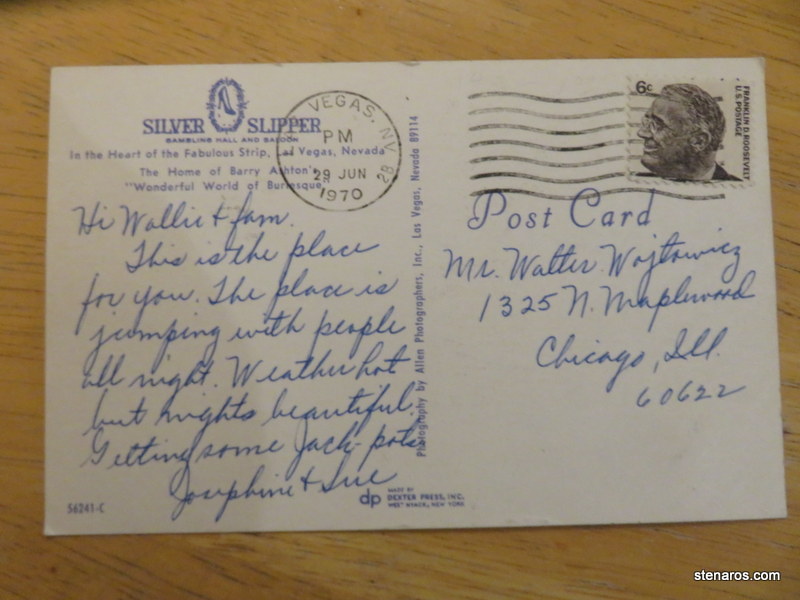 SILVER SLIPPER
GAMBLING HALL AND SALOON
In the Heart of the Fabulous Strip, Las Vegas, Nevada
The Home of Barry Ashton's
"Wonderful World of Burlesque"
Hi Wallie & fam.
This is the place
for you. The place is
jumping with people
all night. Weather hot
but nights beautiful.
Getting some Jack-pots
Josephine & Sue
56241-C
VEGAS, NV
PM
29 JUN
1970
Photography by Allen Photographers, Inc., Las Vegas, Nevada 89114
dp MADE BY
DEXTER PRESS, INC.
WEST NYACK, NEW YORK
6c
FRANKLIN D. ROOSEVELT
U.S. POSTAGE
Post Card
Mr. Walter Wojtowicz
1325 N. Maplewood
Chicago, Ill.
60622
stenaros.com